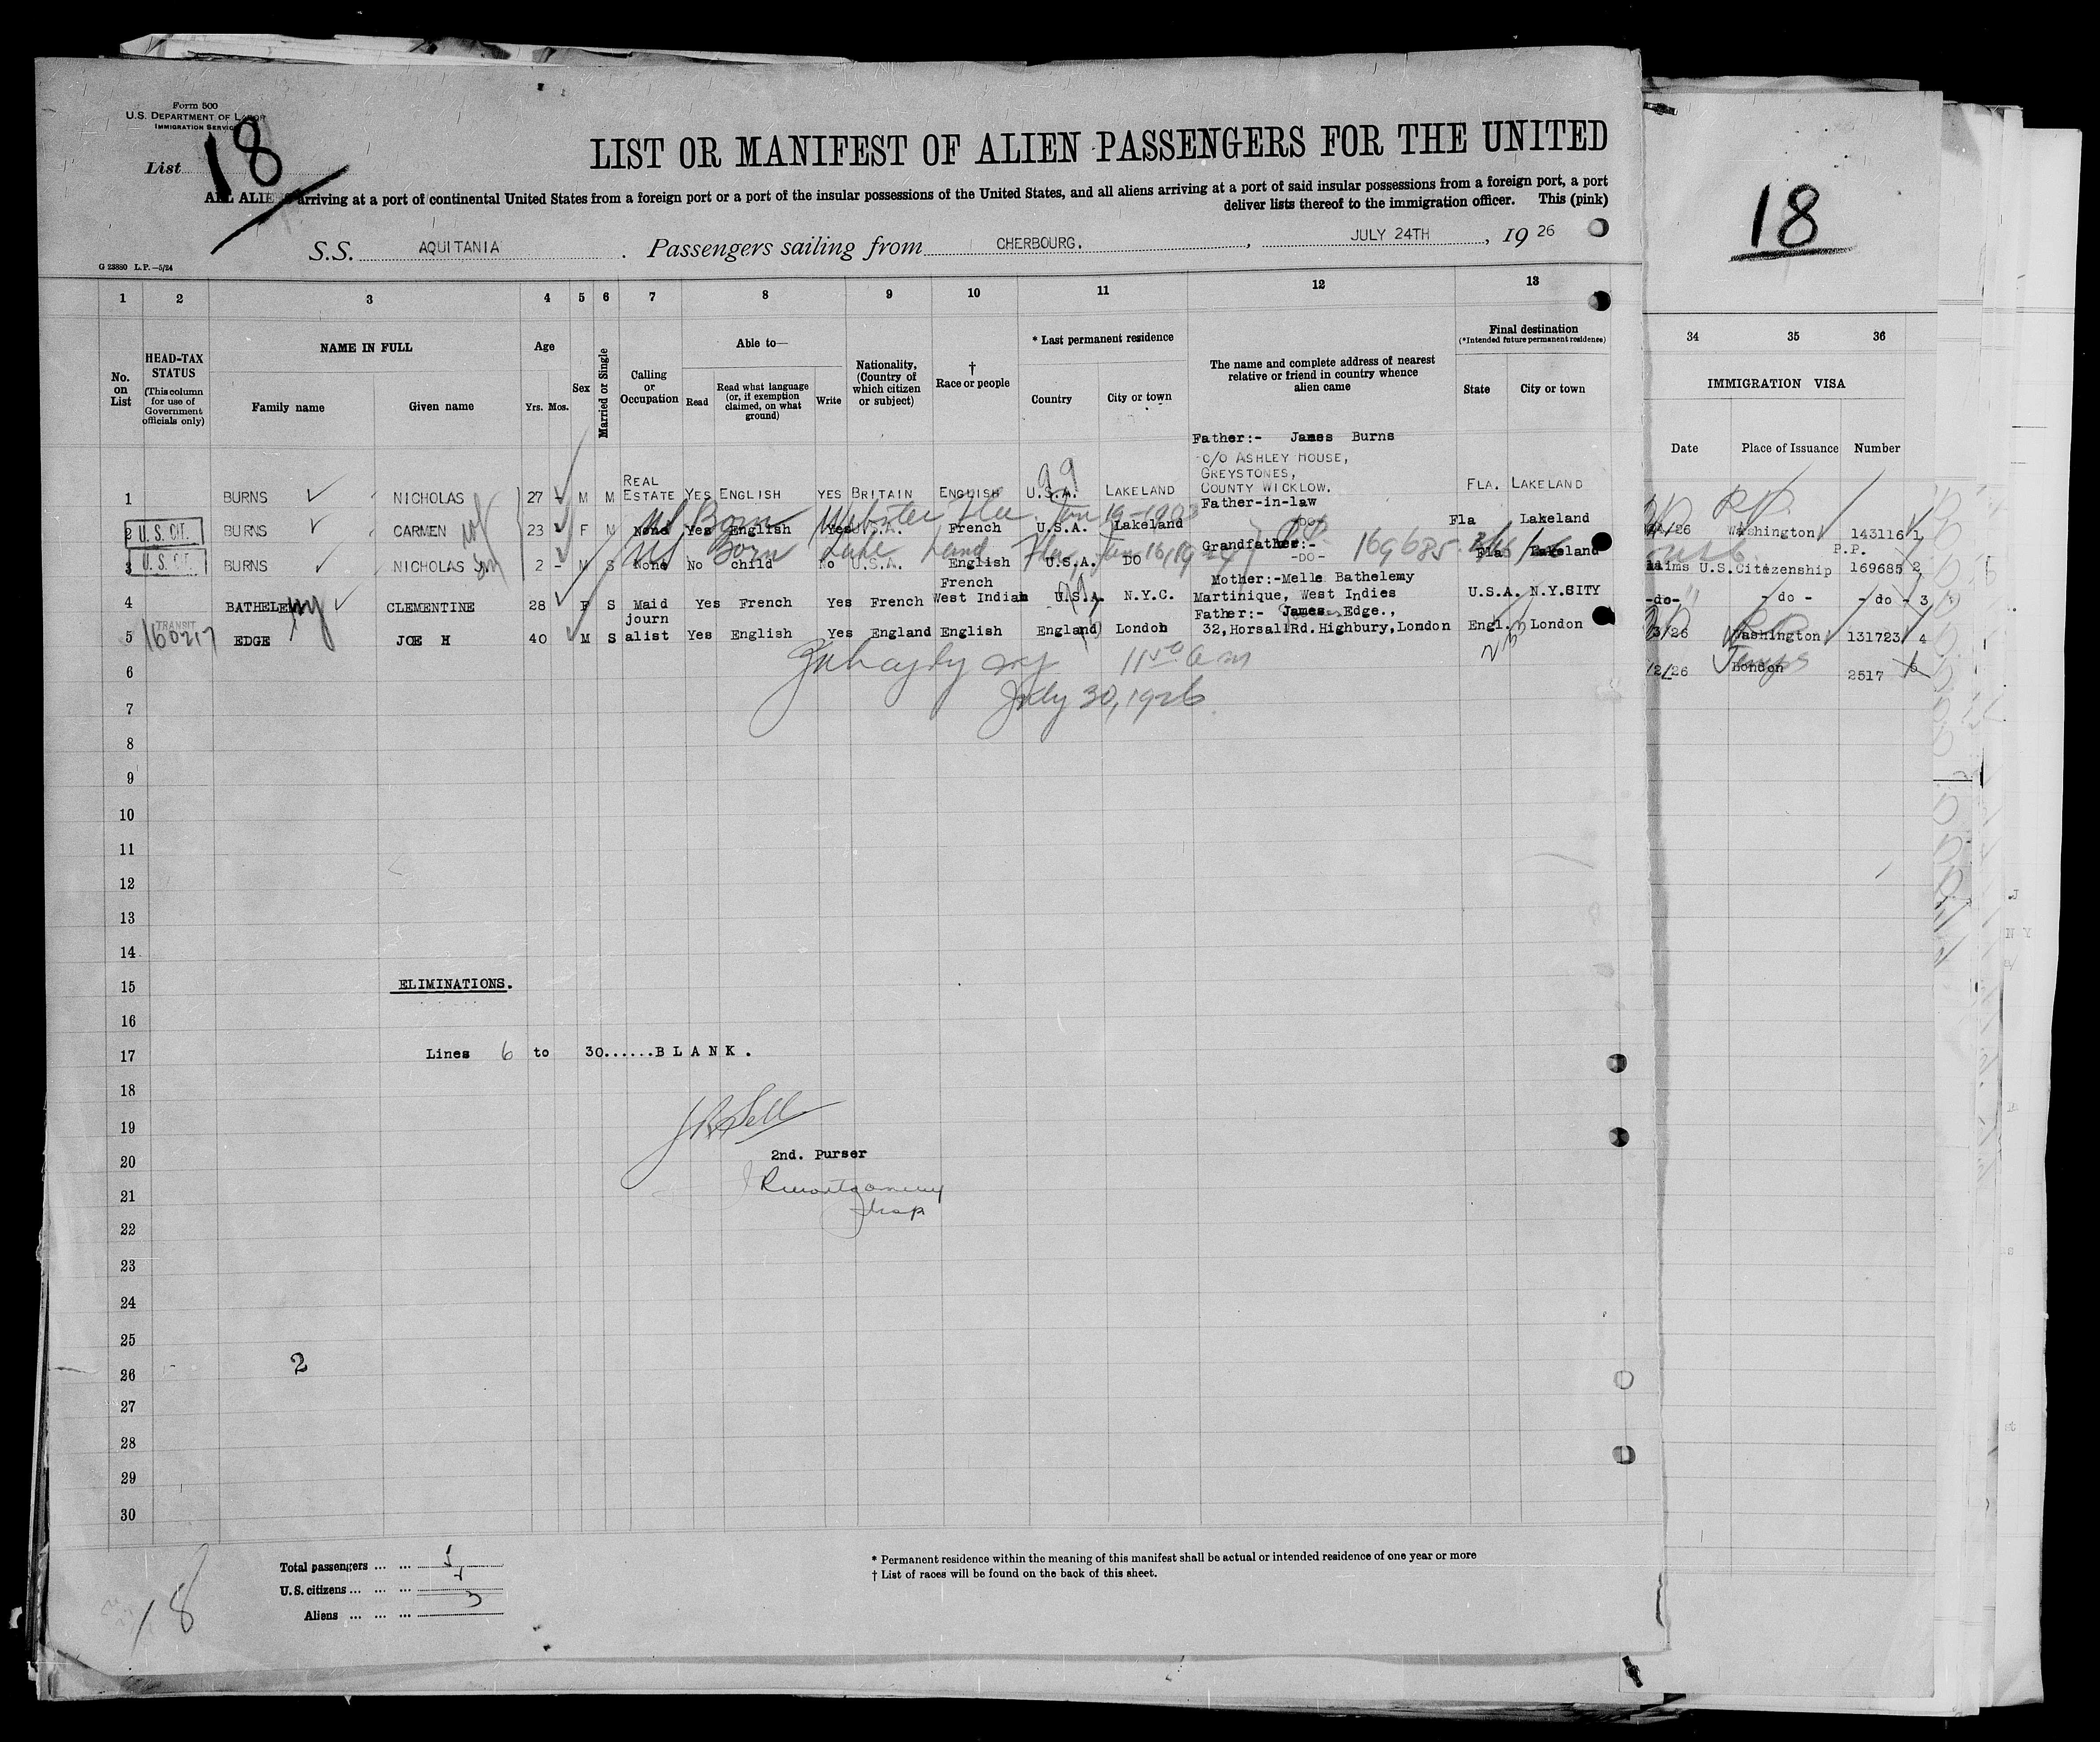 Form 500
U.S. DEPARTMENT OF LABOR
IMMIGRATION SERVICE
List 18
LIST OR MANIFEST OF ALIEN PASSENGERS FOR THE UNITED
ALL ALIENS arriving at a port of continental United States from a foreign port or a port of the insular possessions of the United States, and all aliens arriving at a port of said insular possessions from a foreign port, a port
deliver lists thereof to the immigration officer. This (pink)
S.S. AQUITANIA. Passengers sailing from CHERBOURG., JULY 24TH, 19 26
G 23880 L.P.—5/24
18
1 2 3 4 5 6 7 8 9 10 11 12 13
34 35 36
No. on List
HEAD-TAX STATUS
(This column for use of Government officials only)
NAME IN FULL
Family name Given name
Age
Yrs. Mos.
Sex
Married or Single
Calling or Occupation
Able to—
Read
Read what language (or, if exemption claimed, on what ground)
Write
Nationality, (Country of which citizen or subject)
† Race or people
* Last permanent residence
Country City or town
The name and complete address of nearest relative or friend in country whence alien came
Final destination
(*Intended future permanent residence)
State City or town
IMMIGRATION VISA
Date Place of Issuance Number
Father:- James Burns
C/O ASHLEY HOUSE,
GREYSTONES,
COUNTY WICKLOW.
1 BURNS NICHOLAS 27 - M M REAL ESTATE YES ENGLISH YES BRITAIN ENGLISH U.S.A. LAKELAND FLA. LAKELAND
US Born Webster Fla. Jan 19-1903
Father-in-law
2 U.S. CIT. BURNS CARMEN wf 23 F M None Yes English Yes U.S.A. French U.S.A. Lakeland -do- Fla Lakeland
US Born Lake Land Fla, Jan 16, 1924
169685
Grandfather:-
3 U.S. CIT. BURNS NICHOLAS son 2 - M S None No child No U.S.A. English U.S.A. DO -DO- Fla Lakeland
Mother:-Melle Bathelemy
4 BATHELEMY CLEMENTINE 28 F S Maid Yes French Yes French French West Indian U.S.A. N.Y.C. Martinique, West Indies U.S.A. N.Y.SITY
Father:- James Edge.,
TRANSIT
160217
5 EDGE JOE H 40 M S journ alist Yes English Yes England English England London 32,Horsall Rd. Highbury,London Engl. London
/26 Washington 143116 1
P.P.
Claims U.S.Citezenship 169685 2
-do- - do - - do - 3
3/26 Washington 131723 4
/2/26 London 2517
1150 am
July 30, 1926
6
7
8
9
10
11
12
13
14
15 ELIMINATIONS.
16
17 Lines 6 to 30......BLANK.
18
19
20 2nd. Purser
21 RMontgomery
22
23
24
25
26 2
27
28
29
30
Total passengers ... ... 5
U. S. citizens ... ... ...
Aliens ... ... ... 3
* Permanent residence within the meaning of this manifest shall be actual or intended residence of one year or more
† List of races will be found on the back of this sheet.
18